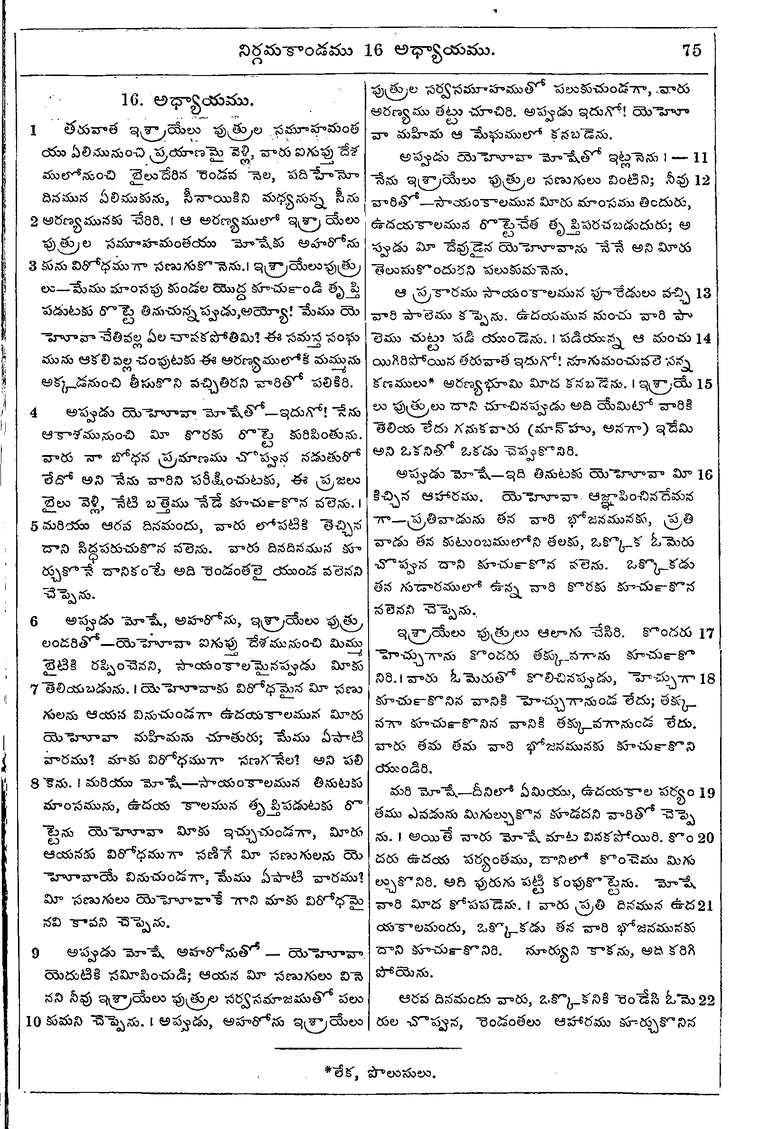 నిర్గమకాండము 16 అధ్యాయము. 75
16. అధ్యాయము.
1 తరువాత ఇశ్రాయేలు పుత్రుల సమూహమంత
యు ఏలిమునుంచి ప్రయాణమై వెళ్లి, వారు ఐగుప్తు దేశ
ములోనుంచి బైలుదేరిన రెండవ నెల, పదిహేనో
దినమున ఏలిముకును, సీనాయికిని మధ్యనున్న సీను
2 అరణ్యమునకు చేరిరి. । ఆ అరణ్యములో ఇశ్రాయేలు
పుత్రుల సమూహమంతయు మోషేకు అహరోను
3 కును విరోధముగా సణుగుకొనెను. । ఇశ్రాయేలుపుత్రు
లు—మేము మాంసపు కుండల యొద్ద కూర్చుండి తృప్తి
పడుటకు రొట్టె తినుచున్నప్పడు, అయ్యో! మేము యె
హెూవా చేతివల్ల ఏల చావకపోతిమి? ఈ సమస్త సంఘ
మును ఆకలి వల్ల చంపుటకు ఈ అరణ్యములోకి మమ్మును
అక్కడనుంచి తీసుకొని వచ్చితిరని వారితో పలికిరి.
4 అప్పుడు యెహెూవా మోషేతో—ఇదుగో! నేను
ఆకాశమునుంచి మీ కొరకు రొట్టె కురిపింతును.
వారు నా బోధన ప్రమాణము చొప్పున నడుతురో
లేదో అని నేను వారిని పరీక్షించుటకు, ఈ ప్రజలు
బైలు వెళ్లి, నేటి బత్తెము నేడే కూర్చుకొన వలెను. ।
5 మరియు ఆరవ దినమందు, వారు లోపటికి తెచ్చిన
దాని సిద్ధపరుచుకొన వలెను. వారు దినదినమున కూ
ర్చుకొనే దానికంటే అది రెండంతలై యుండ వలెనని
చెప్పెను.
6 అప్పుడు మోషే, అహరోను, ఇశ్రాయేలు పుత్రు
లందరితో—యెహెూవా ఐగుప్తు దేశమునుంచి మిమ్ము
బైటికి రప్పించెనని, సాయంకాలమైనప్పుడు మీకు
7 తెలియబడును. । యెహెూవాకు విరోధమైన మీ సణు
గులను ఆయన వినుచుండగా ఉదయకాలమున మీరు
యెహెూవా మహిమను చూతురు; మేము ఏపాటి
వారము? మాకు విరోధముగా సణగనేల? అని పలి
8 కెను. । మరియు మోషే—సాయంకాలమున తినుటకు
మాంసమును, ఉదయ కాలమున తృప్తిపడుటకు రొ
ట్టెను యెహెూవా మీకు ఇచ్చుచుండగా, మీరు
ఆయనకు విరోధముగా సణిగే మీ సణుగులను యె
హెూవాయే వినుచుండగా, మేము ఏపాటి వారము?
మీ సణుగులు యెహెూవాకే గాని మాకు విరోధమై
నవి కావని చెప్పెను.
9 అప్పుడు మోషే అహరోనుతో — యెహెూవా
యెదుటికి సమీపించుడి; ఆయన మీ సణుగులు వినె
నని నీవు ఇశ్రాయేలు పుత్రుల సర్వసమాజముతో పలు
10 కుమని చెప్పెను. । అప్పుడు, అహరోను ఇశ్రాయేలు
పుత్రుల సర్వసమూహముతో పలుకుచుండగా, వారు
అరణ్యము తట్టు చూచిరి. అప్పడు ఇదుగో! యెహెూ
వా మహిమ ఆ మేఘములో కనబడెను.
అప్పుడు యెహెూవా మోషేతో ఇట్లనెను । — 11
నేను ఇశ్రాయేలు పుత్రుల సణుగులు వింటిని; నీవు 12
వారితో—సాయంకాలమున మీరు మాంసము తిందురు,
ఉదయకాలమున రొట్టెచేత తృప్తిపరచబడుదురు; అ
ప్పుడు మీ దేవుడైన యెహెూవాను నేనే అని మీరు
తెలుసుకొందురని పలుకుమనెను.
ఆ ప్రకారము సాయంకాలమున పూరేడులు వచ్చి 13
వారి పాలెము కప్పెను. ఉదయమున మంచు వారి పా
లెము చుట్టు పడి యుండెను. । పడియున్న ఆ మంచు 14
యిగిరిపోయిన తరువాత ఇదుగో! నూగుమంచువలె సన్న
కణములు* అరణ్యభూమి మీద కనబడెను. । ఇశ్రాయే 15
లు పుత్రులు దాని చూచినప్పుడు అది యేమిటో వారికి
తెలియ లేదు గనుకవారు (మాన్‌హు, అనగా) ఇదేమి
అని ఒకనితో ఒకడు చెప్పుకొనిరి.
అప్పుడు మోషే—ఇది తినుటకు యెహెూవా మీ 16
కిచ్చిన ఆహారము. యెహెూవా ఆజ్ఞాపించినదేమన
గా—ప్రతివాడును తన వారి భోజనమునకు, ప్రతి
వాడు తన కుటుంబములోని తలకు, ఒక్కొక ఓమెరు
చొప్పున దాని కూర్చుకొన వలెను. ఒక్కొకడు
తన గుడారములో ఉన్న వారి కొరకు కూర్చుకొన
వలెనని చెప్పెను.
ఇశ్రాయేలు పుత్రులు ఆలాగు చేసిరి. కొందరు 17
హెచ్చుగాను కొందరు తక్కువగాను కూర్చుకొ
నిరి. । వారు ఓమెరుతో కొలిచినప్పుడు, హెచ్చుగా 18
కూర్చుకొనిన వానికి హెచ్చుగానుండ లేదు; తక్కు
వగా కూర్చుకొనిన వానికి తక్కువగానుండ లేదు.
వారు తమ తమ వారి భోజనమునకు కూర్చుకొని
యుండిరి.
మరి మోషే—దీనిలో ఏమియు, ఉదయకాల పర్యం 19
తము ఎవడును మిగుల్చుకొన కూడదని వారితో చెప్పె
ను. । అయితే వారు మోషే మాట వినకపోయిరి. కొం 20
దరు ఉదయ పర్యంతము, దానిలో కొంచెము మిగు
ల్చుకొనిరి. అది పురుగు పట్టి కంపుకొట్టెను. మోషే
వారి మీద కోపపడెను. । వారు ప్రతి దినమున ఉద 21
యకాలమందు, ఒక్కొకడు తన వారి భోజనమునకు
దాని కూర్చుకొనిరి. సూర్యుని కాకను, అది కరిగి
పోయెను.
ఆరవ దినమందు వారు, ఒక్కొకనికి రెండేసి ఓమె 22
రుల చొప్పున, రెండంతలు ఆహారము కూర్చుకొనిన
*లేక, పొలుసులు.